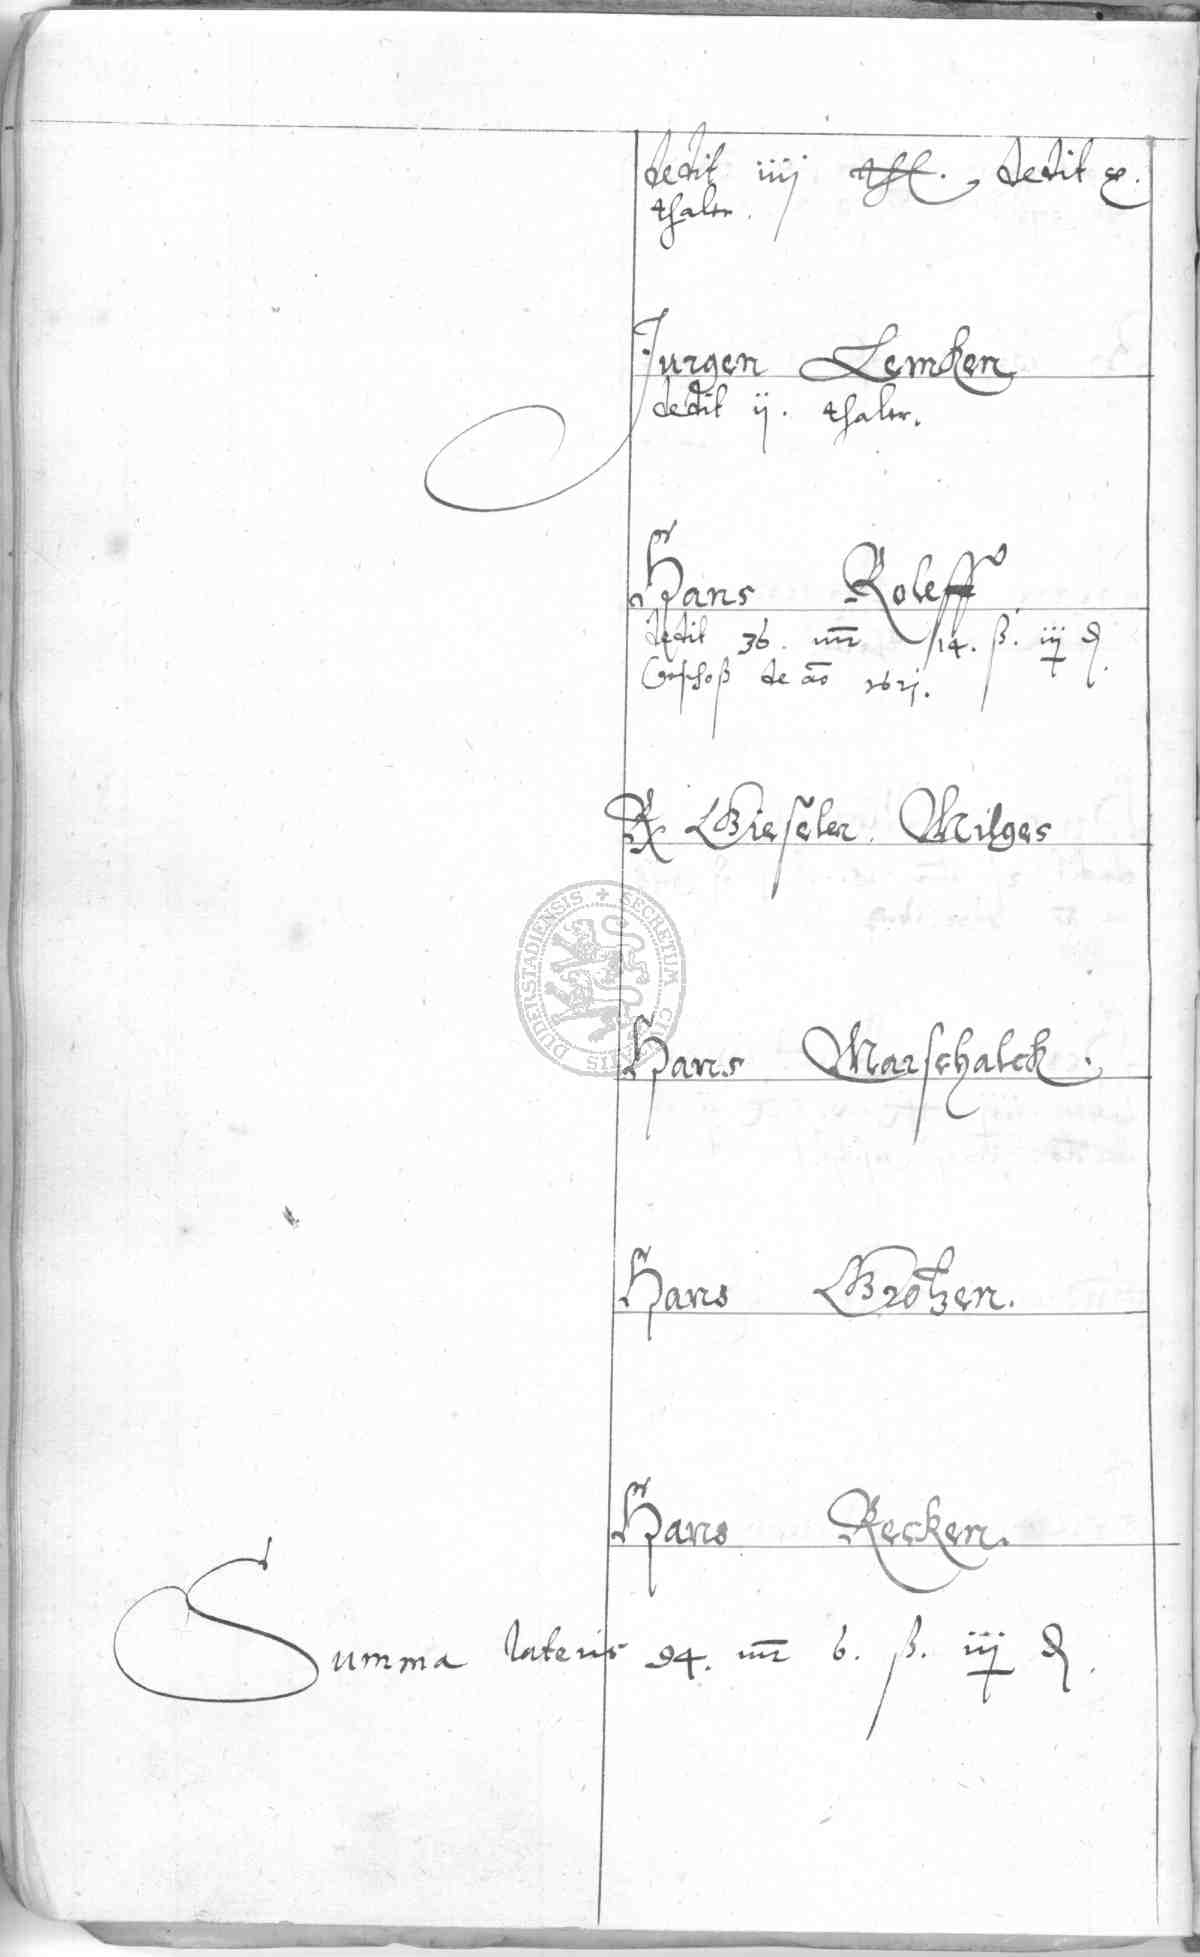 dedit iiij thl. dedit x.
thaler.
Jurgen Lemken
dedit ij. thaler.
Hans Roleff
dedit 36. mr 14. ß. iij ₰.
Geschoß de ao 1621.
Gieseler Milges
DUDERSTADIENSIS + SECRETUM CIVITATIS
Hans Marschalck.
Hans Grotzen.
Hans Recken.
Summa lateris 94. mr 6. ß. iij ₰.